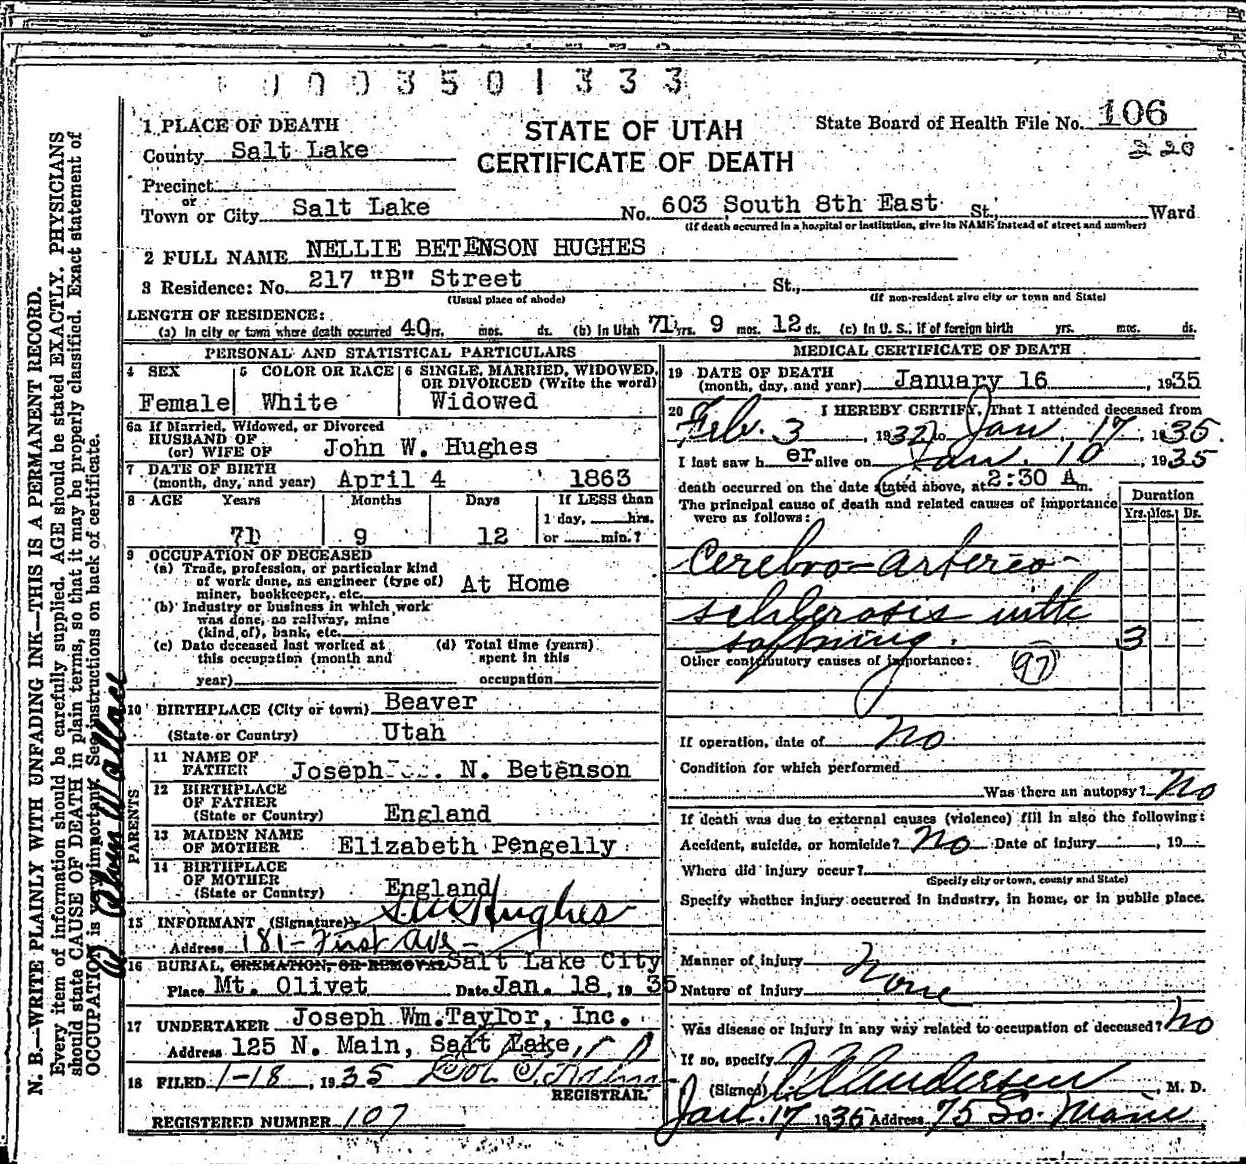 0003501333
STATE OF UTAH
CERTIFICATE OF DEATH
State Board of Health File No. 106
220
1 PLACE OF DEATH
County Salt Lake
Precinct
or
Town or City Salt Lake No. 603 South 8th East St., Ward
(If death occurred in a hospital or institution, give its NAME instead of street and number)
2 FULL NAME NELLIE BETENSON HUGHES
3 Residence: No. 217 "B" Street St.,
(Usual place of abode) (If non-resident give city or town and State)
LENGTH OF RESIDENCE:
(a) In city or town where death occurred 40 yrs. mos. ds. (b) In Utah 71 yrs. 9 mos. 12 ds. (c) In U. S., if of foreign birth yrs. mos. ds.
PERSONAL AND STATISTICAL PARTICULARS
4 SEX Female
5 COLOR OR RACE White
6 SINGLE, MARRIED, WIDOWED, OR DIVORCED (Write the word) Widowed
6a If Married, Widowed, or Divorced
HUSBAND OF
(or) WIFE OF John W. Hughes
7 DATE OF BIRTH
(month, day, and year) April 4 1863
8 AGE Years Months Days If LESS than
1 day, hrs.
71 9 12 or min.?
9 OCCUPATION OF DECEASED
(a) Trade, profession, or particular kind
of work done, as engineer (type of)
miner, bookkeeper, etc. At Home
(b) Industry or business in which work
was done, as railway, mine
(kind of), bank, etc.
(c) Date deceased last worked at
this occupation (month and
year)
(d) Total time (years)
spent in this
occupation
10 BIRTHPLACE (City or town) Beaver
(State or Country) Utah
PARENTS
11 NAME OF
FATHER Joseph N. Betenson
12 BIRTHPLACE
OF FATHER
(State or Country) England
13 MAIDEN NAME
OF MOTHER Elizabeth Pengelly
14 BIRTHPLACE
OF MOTHER
(State or Country) England
15 INFORMANT (Signature) Hughes
Address 181-First Ave
16 BURIAL, CREMATION, OR REMOVAL Salt Lake City
Place Mt. Olivet Date Jan. 18, 1935
17 UNDERTAKER Joseph Wm. Taylor, Inc.
Address 125 N. Main, Salt Lake,
18 FILED 1-18, 1935
REGISTRAR
REGISTERED NUMBER 107
MEDICAL CERTIFICATE OF DEATH
19 DATE OF DEATH
(month, day, and year) January 16, 1935
20 I HEREBY CERTIFY, That I attended deceased from
Feb. 3, 1932 to Jan. 17, 1935.
I last saw her alive on Jan. 10, 1935
death occurred on the date stated above, at 2:30 A m.
The principal cause of death and related causes of importance
were as follows:
Duration
Yrs. Mos. Ds.
Cerebro-arterio-
schlerosis with
softning. 3
Other contributory causes of importance:
(97)
If operation, date of No
Condition for which performed
Was there an autopsy? No
If death was due to external causes (violence) fill in also the following:
Accident, suicide, or homicide? No Date of injury , 19
Where did injury occur?
(Specify city or town, county and State)
Specify whether injury occurred in industry, in home, or in public place.
Manner of injury None
Nature of Injury
Was disease or injury in any way related to occupation of deceased? No
If so, specify
(Signed) Andersen, M. D.
Jan. 17 1935 Address 75 So. Main
N. B.—WRITE PLAINLY WITH UNFADING INK—THIS IS A PERMANENT RECORD.
Every item of information should be carefully supplied. AGE should be stated EXACTLY. PHYSICIANS
should state CAUSE OF DEATH in plain terms, so that it may be properly classified. Exact statement of
OCCUPATION is very important. See instructions on back of certificate.
Wallace